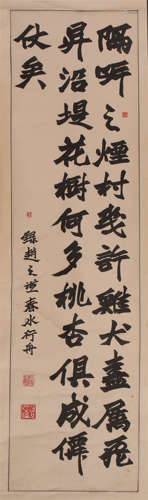 隔町之煙村幾許雞犬盡属飛
昇沿堤花樹何多桃杏俱成僊
仗矣
録趙之謙春水行舟